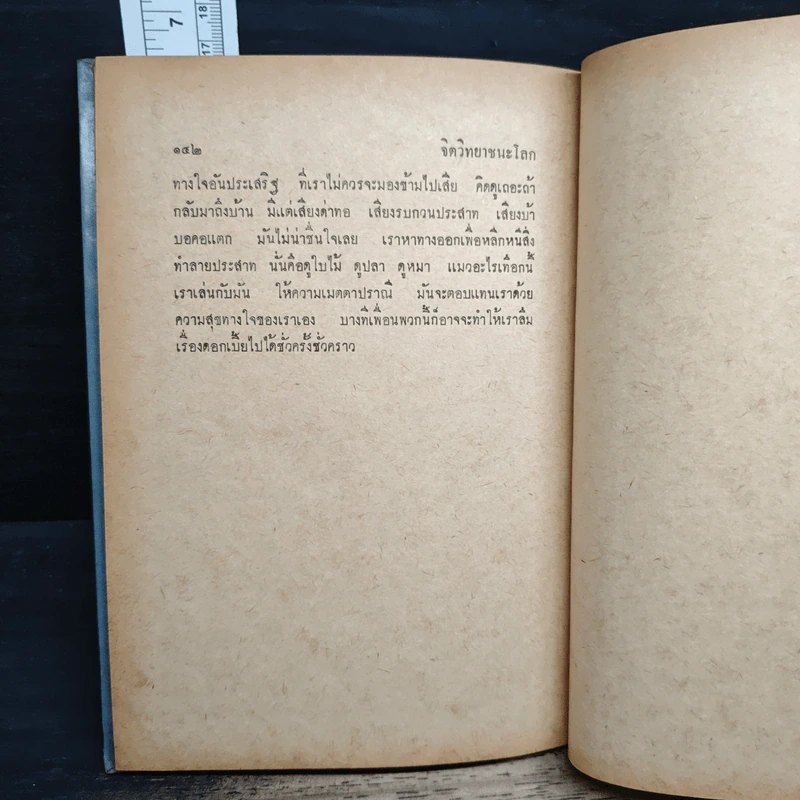 7
18
17
๑๕๒ จิตวิทยาชนะโลก
ทางใจอันประเสริฐ ที่เราไม่ควรจะมองข้ามไปเสีย คิดดูเถอะถ้า
กลับมาถึงบ้าน มีแต่เสียงด่าทอ เสียงรบกวนประสาท เสียงบ้า
บอคอแตก มันไม่น่าชื่นใจเลย เราหาทางออกเพื่อหลีกหนีสิ่ง
ทำลายประสาท นั่นคือดูใบไม้ ดูปลา ดูหมา แมวอะไรเทือกนี้
เราเล่นกับมัน ให้ความเมตตาปรานี มันจะตอบแทนเราด้วย
ความสุขทางใจของเราเอง บางทีเพื่อนพวกนี้ก็อาจจะทำให้เราลืม
เรื่องดอกเบี้ยไปได้ชั่วครั้งชั่วคราว